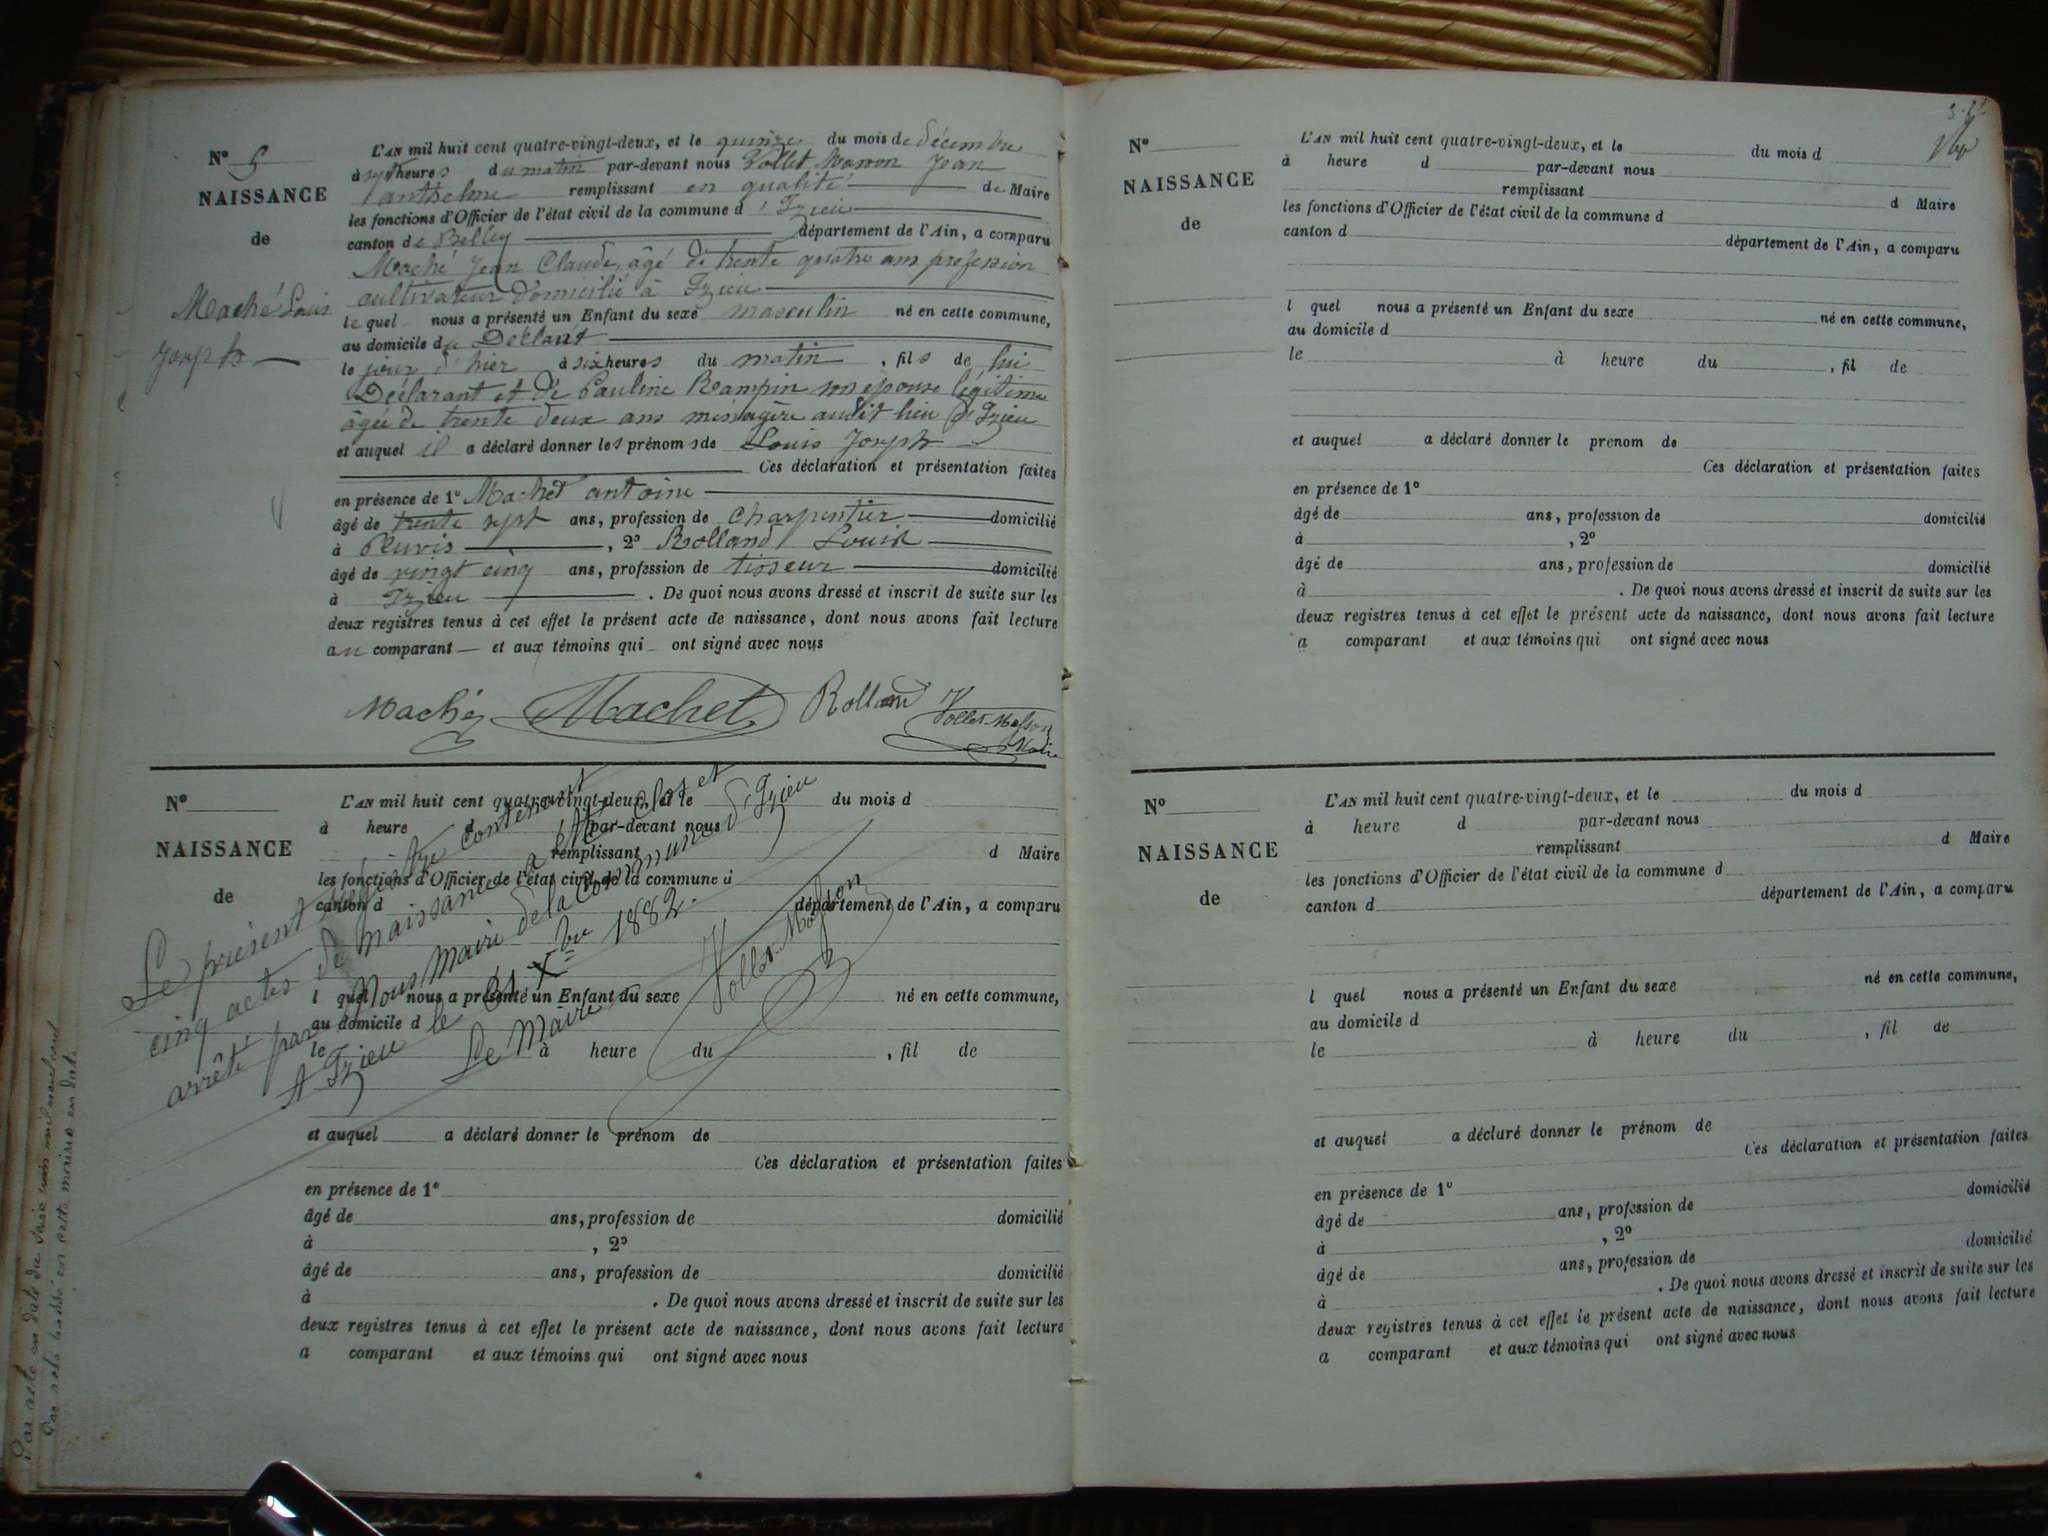 N° 5
NAISSANCE
de
Maché Louis
Joseph
L'AN mil huit cent quatre-vingt-deux, et le quinze du mois de décembre
à sept heures du matin par-devant nous Vollet Jean
anthelme remplissant en qualité de Maire
les fonctions d'Officier de l'état civil de la commune d'Izieu
canton de Belley département de l'Ain, a comparu
Maché Jean Claude, âgé de trente quatre ans profession
cultivateur domicilié à Izieu
lequel nous a présenté un Enfant du sexe masculin né en cette commune,
au domicile du Déclart
le jour d'hier à six heures du matin, fils de lui
Déclarant et de Pauline Rampin son épouse légitime
âgée de trente deux ans ménagère audit lieu d'Izieu
et auquel il a déclaré donner les prénoms de Louis Joseph
Ces déclaration et présentation faites
en présence de 1° Machet antoine
âgé de trente sept ans, profession de charpentier domicilié
à , 2° Rolland Louis
âgé de vingt cinq ans, profession de tisseur domicilié
à Izieu . De quoi nous avons dressé et inscrit de suite sur les
deux registres tenus à cet effet le présent acte de naissance, dont nous avons fait lecture
au comparant et aux témoins qui ont signé avec nous
Maché Machet Rolland Vollet-Masson
Maire
N°
NAISSANCE
de
L'AN mil huit cent quatre-vingt-deux, et le du mois d
à heure d par-devant nous
remplissant d Maire
les fonctions d'Officier de l'état civil de la commune d
canton d département de l'Ain, a comparu
l quel nous a présenté un Enfant du sexe né en cette commune,
au domicile d
le à heure du , fil de
et auquel a déclaré donner le prénom de
Ces déclaration et présentation faites
en présence de 1°
âgé de ans, profession de domicilié
à , 2°
âgé de ans, profession de domicilié
à . De quoi nous avons dressé et inscrit de suite sur les
deux registres tenus à cet effet le présent acte de naissance, dont nous avons fait lecture
a comparant et aux témoins qui ont signé avec nous
Le présent registre contenant
cinq actes de naissance a été clos et
arrêté par Nous Maire de la commune d'Izieu
A Izieu le 31 Xbre 1882.
Le Maire
Vollet-Masson
N°
NAISSANCE
de
L'AN mil huit cent quatre-vingt-deux, et le du mois d
à heure d par-devant nous
remplissant d Maire
les fonctions d'Officier de l'état civil de la commune d
canton d département de l'Ain, a comparu
l quel nous a présenté un Enfant du sexe né en cette commune,
au domicile d
le à heure du , fil de
et auquel a déclaré donner le prenom de
Ces déclaration et présentation faites
en présence de 1°
âgé de ans, profession de domicilié
à , 2°
âgé de ans, profession de domicilié
à . De quoi nous avons dressé et inscrit de suite sur les
deux registres tenus à cet effet le présent acte de naissance, dont nous avons fait lecture
a comparant et aux témoins qui ont signé avec nous
N°
NAISSANCE
de
L'AN mil huit cent quatre-vingt-deux, et le du mois d
à heure d par-devant nous
remplissant d Maire
les fonctions d'Officier de l'état civil de la commune d
canton d département de l'Ain, a comparu
l quel nous a présenté un Enfant du sexe né en cette commune,
au domicile d
le à heure du , fil de
et auquel a déclaré donner le prénom de
Ces déclaration et présentation faites
en présence de 1°
âgé de ans, profession de domicilié
à , 2°
âgé de ans, profession de domicilié
à . De quoi nous avons dressé et inscrit de suite sur les
deux registres tenus à cet effet le présent acte de naissance, dont nous avons fait lecture
a comparant et aux témoins qui ont signé avec nous